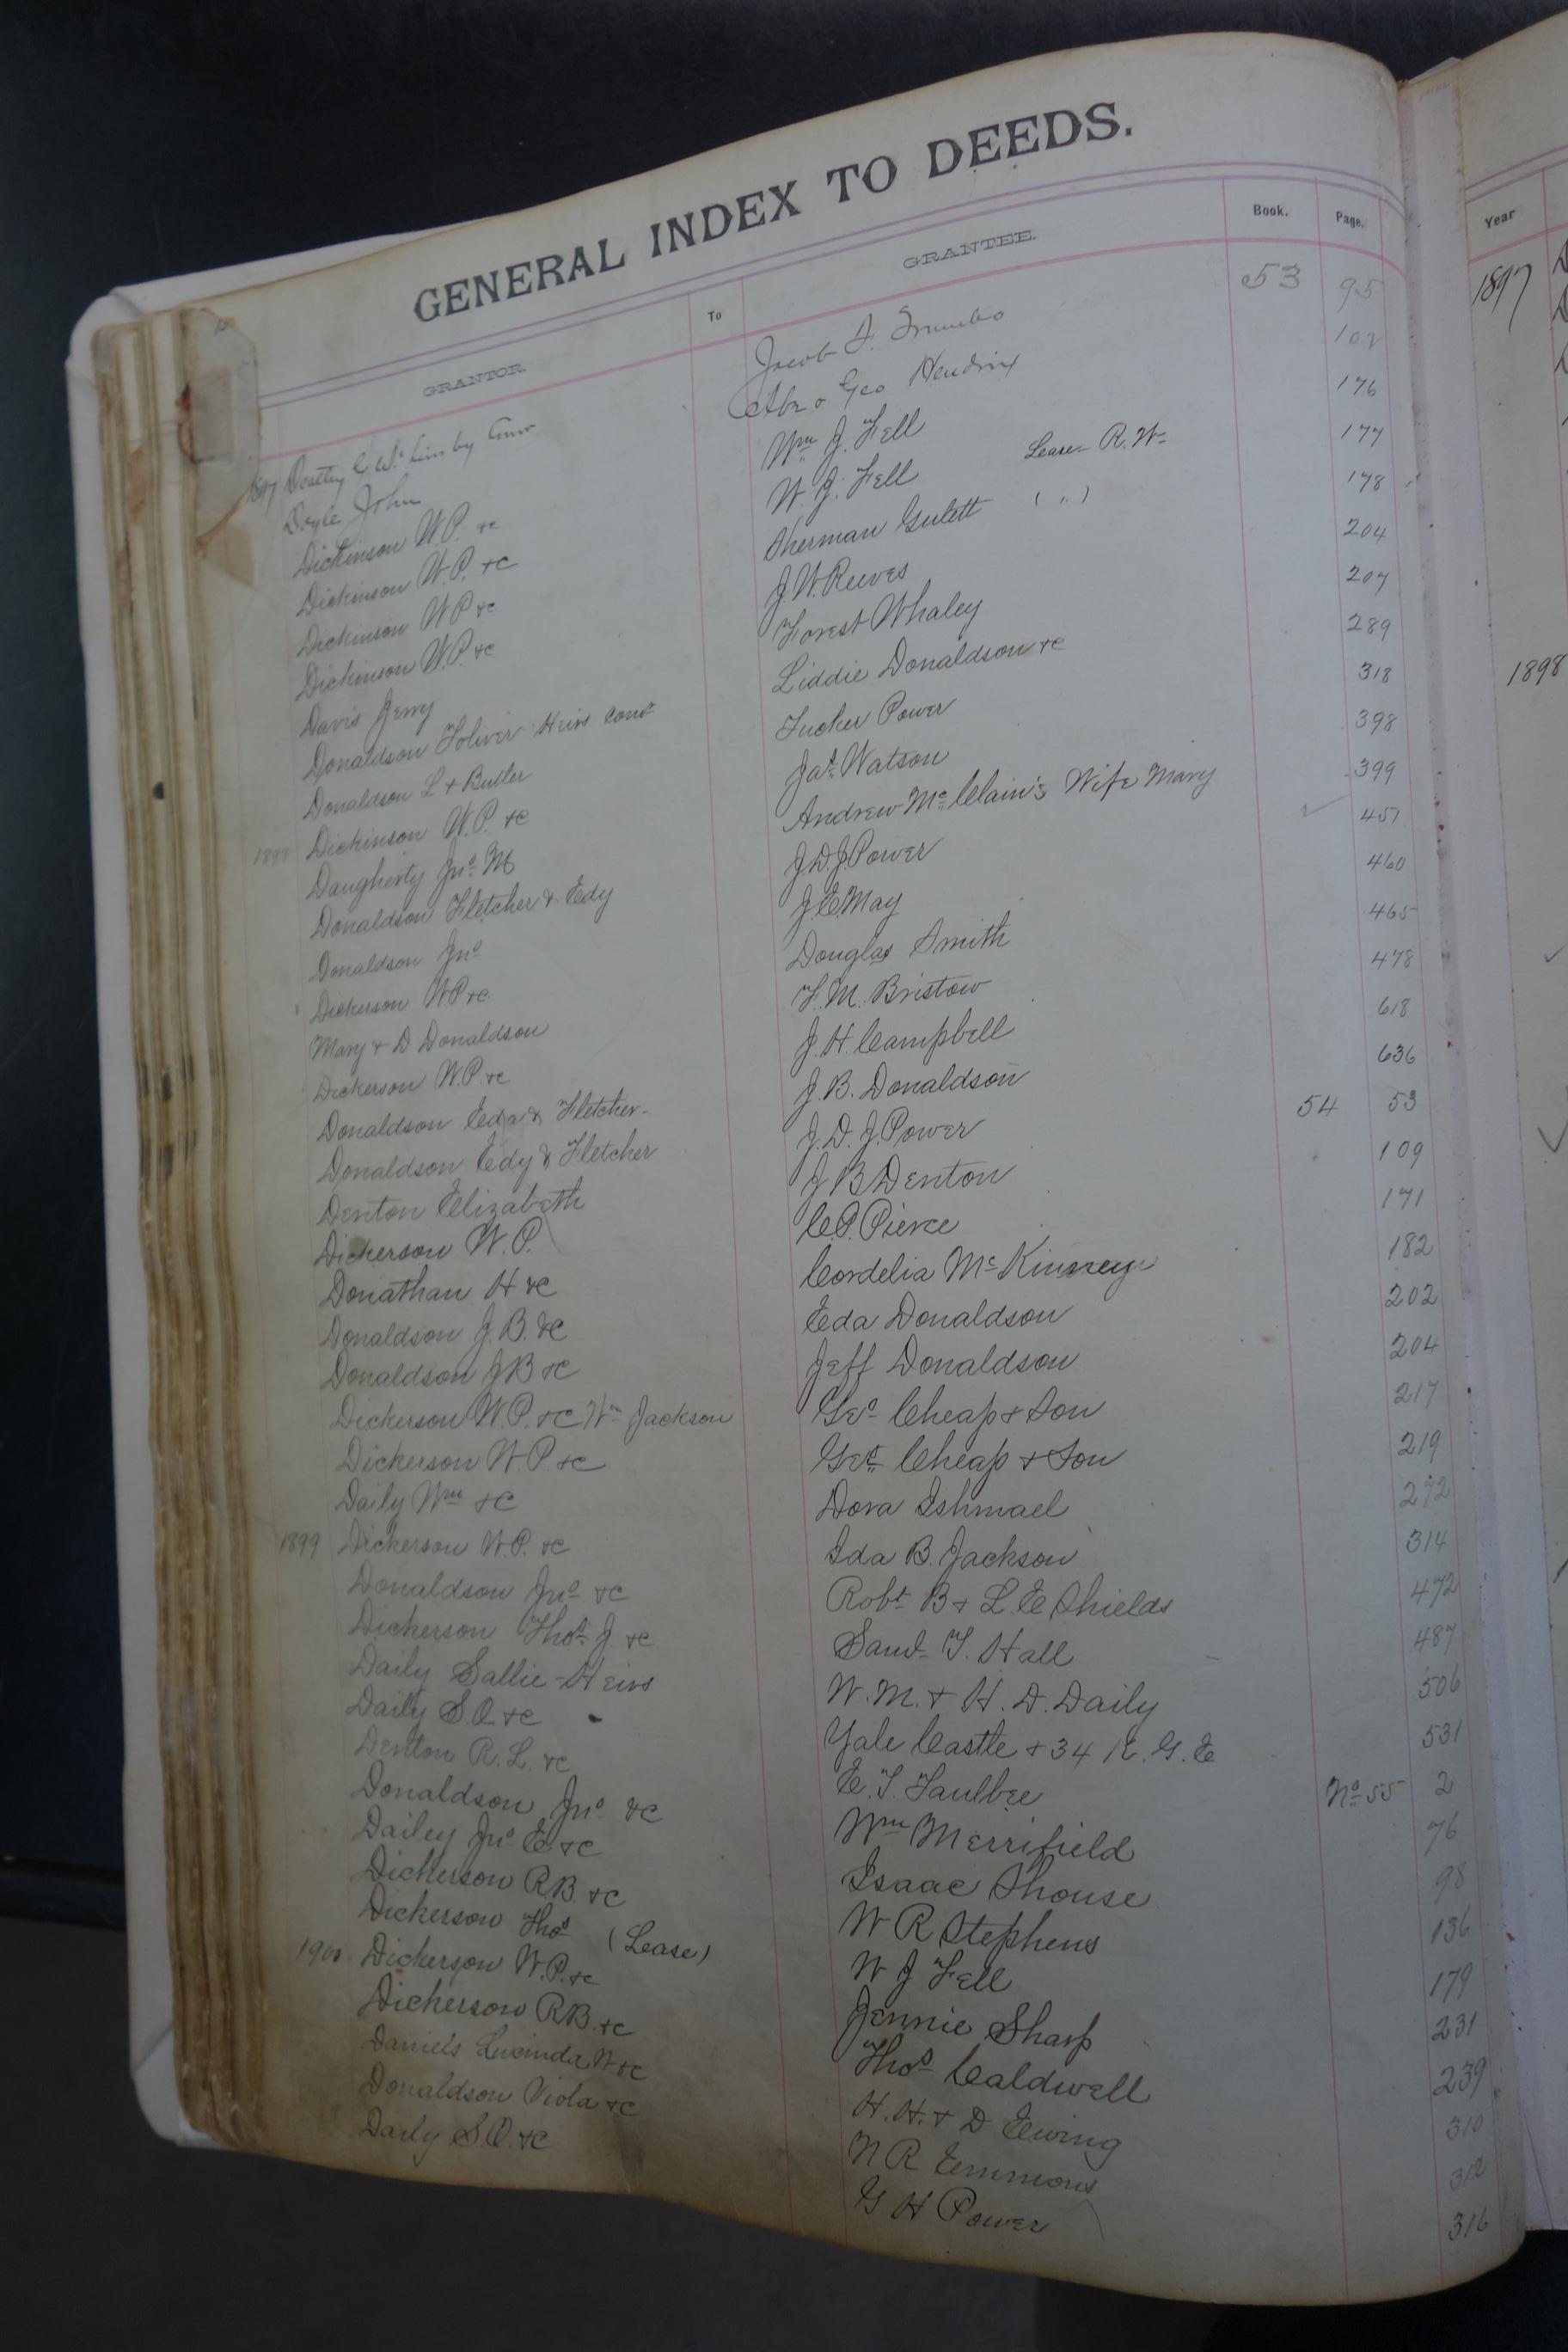 GENERAL INDEX TO DEEDS.
GRANTOR To GRANTEE. Book. Page. Year
1897 by Jacob F. Trumbo 53 95 1897
Doyle John Abe & Geo Hendrix 102
Dickinson W.P. &c Wm J. Fell 176
Dickinson W.P. &c W. J. Fell Lease R.W. 177
Dickinson W P &c Sherman Gulett ( " ) 178
Dickinson W.P. &c J.W. Reeves 204
Davis Jerry Forest Whaley 207
Donaldson Toliver Heirs Comr Liddie Donaldson &c 289
Donaldson L & Butler Tucker Power 318 1898
1898 Dickinson W.P. &c Jas Watson 398
Daugherty Jno M Andrew McClain's Wife Mary 399
Donaldson Fletcher & Edy J.D.J. Power 451
Donaldson Jno J.E. May 460
Dickerson W P &c Douglas Smith 465
Mary & D Donaldson F.M. Bristow 478
Dickerson W.P. &c J.H. Campbell 618
Donaldson Eda & Fletcher J.B. Donaldson 636
Donaldson Edy & Fletcher J.D.J. Power 54 53
Denton Elizabeth J B Denton 109
Dickerson W.P. C.P. Pierce 171
Donathan H &c Cordelia McKinney 182
Donaldson J.B. &c Eda Donaldson 202
Donaldson J B &c Jeff Donaldson 204
Dickerson W.P. &c Wm Jackson Geo Cheap & Son 217
Dickerson W.P. &c Geo Cheap & Son 219
Daily Wm &c Dora Ishmael 272
1899 Dickerson W.P. &c Ida B. Jackson 314
Donaldson Jno &c Robt B & L.E Shields 472
Dickerson Thos J. &c Saml T. Hall 487
Daily Sallie Heirs W.M. & H.D. Daily 506
Daily S.Q. &c Yale Castle & 34 K.G.E 531
Denton R.L. &c E.T. Faulbee No 55 2
Donaldson Jno &c Wm Merrifield 76
Dailey Jno E &c Isaac Shouse 98
Dickerson R B. &c W R Stephens 136
Dickerson Thos (Lease) W J Fell 179
1900 Dickerson W.P. &c Jennie Sharp 231
Dickerson R B. &c Thos Caldwell 239
Daniels Lucinda W &c H.H. & D Ewing 310
Donaldson Viola &c N R Emmons 312
Daily S.Q. &c G H Power 316